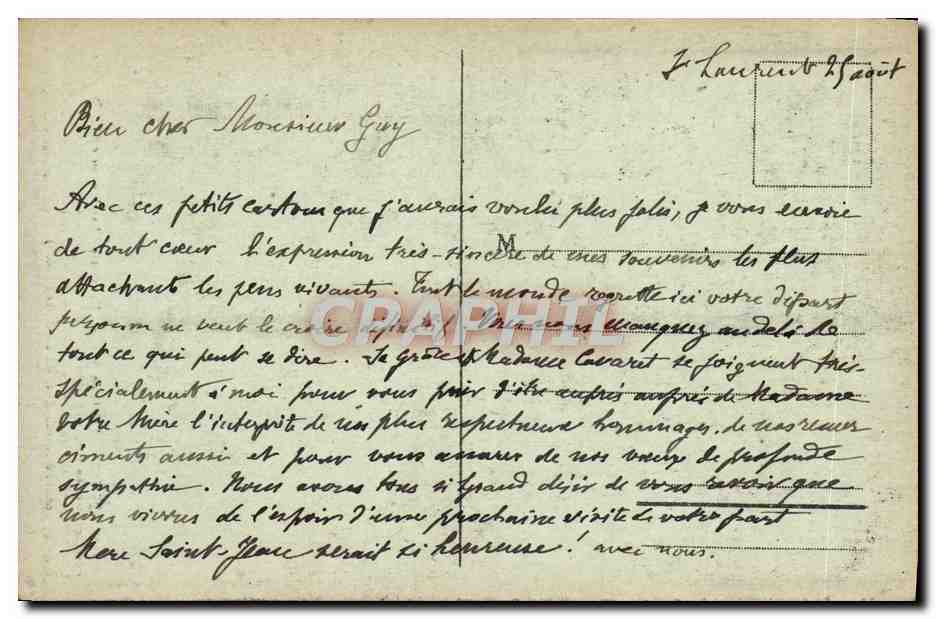 St Laurent 25 août
Bien cher Monsieur Guy
Avec ces petits cartons que j'aurais voulu plus jolis, je vous envoie
de tout cœur l'expression très-sincère de mes souvenirs les plus
M
attachants les plus vivants. Tout le monde regrette ici votre départ
personne ne veut le croire définitif. Vous nous manquez au delà de
CRAPHIL
tout ce qui peut se dire. Sa Grâce & Madame Cavaret se joignent très-
spécialement à moi pour vous prier d'être auprès auprès de Madame
votre Mère l'interprète de nos plus respectueux hommages, de nos remer
ciments aussi et pour vous assurer de nos vœux de profonde
sympathie. Nous avons tous si grand désir de vous revoir que
nous vivons de l'espoir d'une prochaine visite de votre part
Mère Saint-Jean serait si heureuse! avec nous.